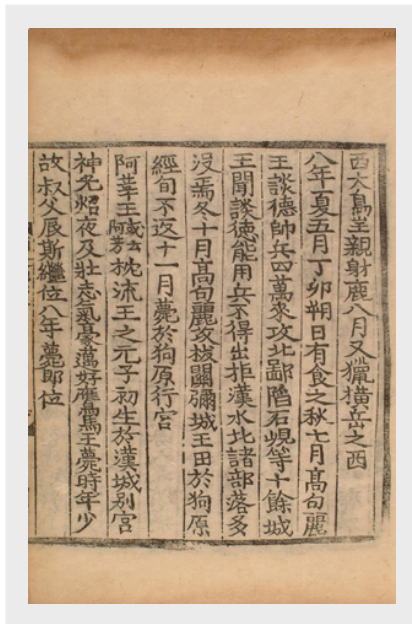 西大島王親射鹿八月又獵橫岳之西
八年夏五月丁卯朔日有食之秋七月高句麗
王談德帥兵四萬來攻北鄙陷石峴等十餘城
王聞談德能用兵不得出拒漢水北諸部落多
没焉冬十月高句麗攻拔關彌城王田於狗原
經旬不返十一月薨於狗原行宮
阿莘王或云阿芳枕流王之元子初生於漢城別宮
神光炤夜及壯志氣豪邁好鷹馬王薨時年少
故叔父辰斯繼位八年薨即位